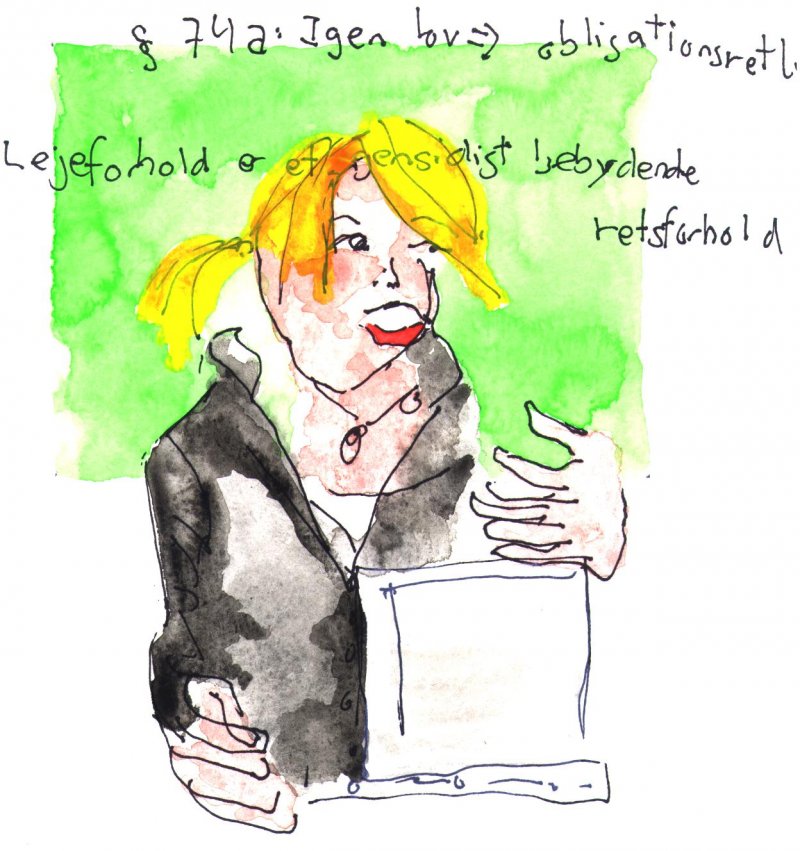 § 74a: Igen lov => obligationsretl.
Lejeforhold er et gensidigt bebyrdende
retsforhold